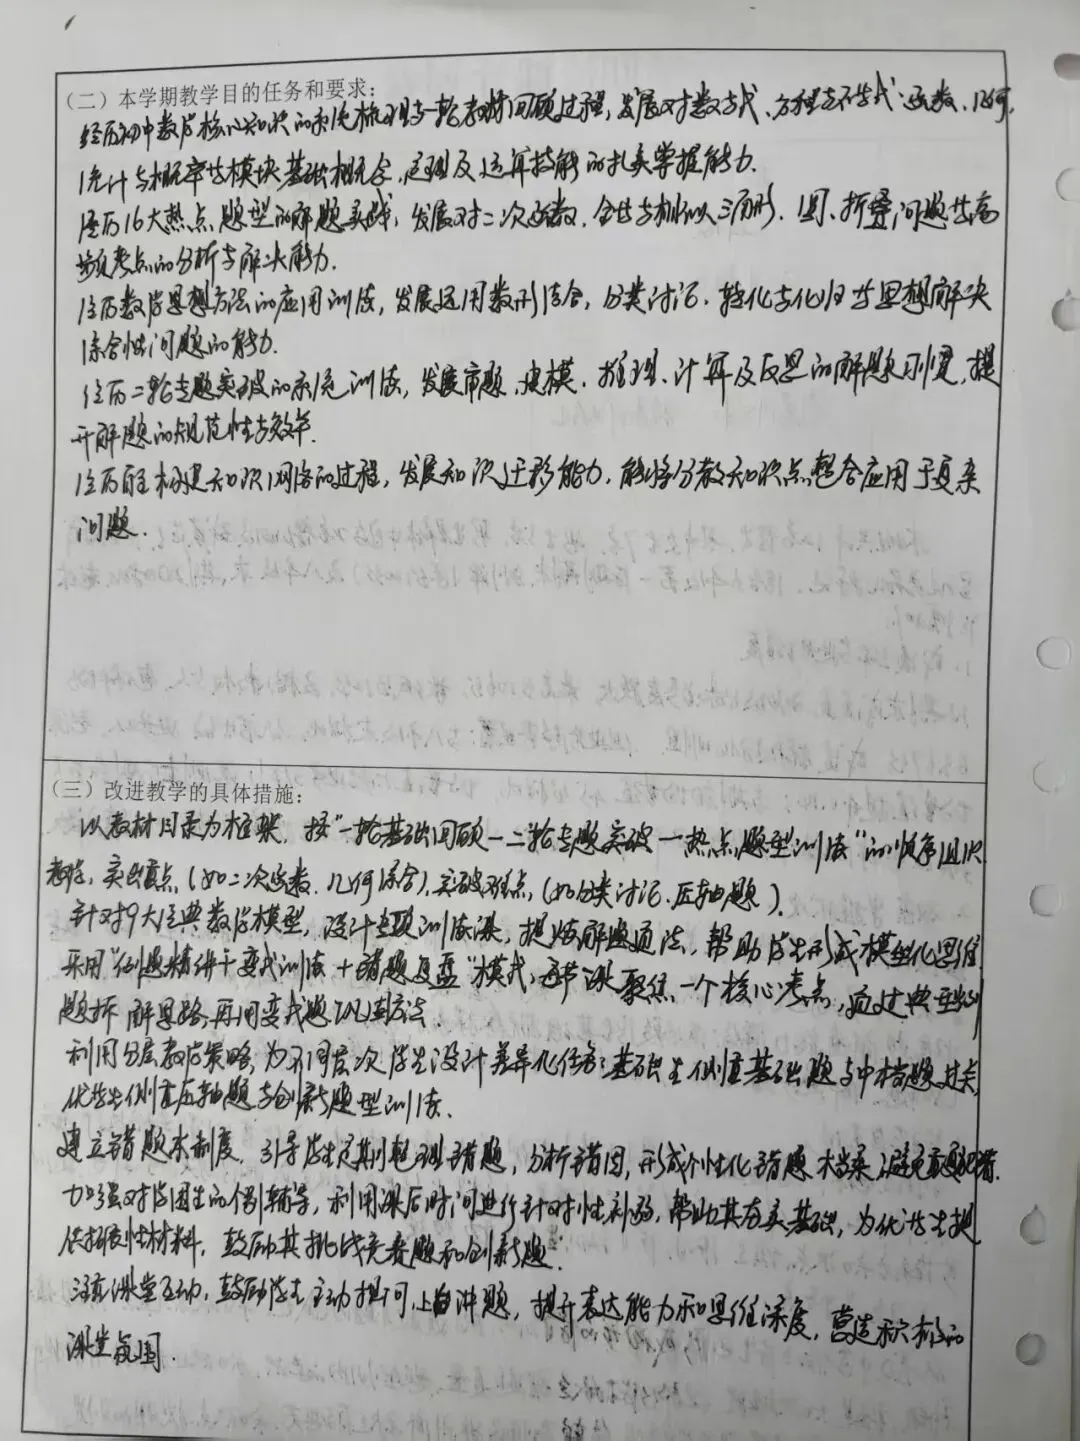 （二）本学期教学目的任务和要求：
经历初中数学核心知识的系统梳理与一轮教材回顾过程，发展对数与式、方程与不等式、函数、几何、
统计与概率等模块基础概念、定理及运算技能的扎实掌握能力.
经历16大热点题型的解题实战，发展对二次函数、全等与相似三角形、圆、折叠问题等高
频考点的分析与解决能力.
经历数学思想方法的应用训练，发展运用数形结合，分类讨论、转化与化归等思想解决
综合性问题的能力.
经历二轮专题突破的系统训练，发展审题、建模、推理、计算及反思的解题习惯，提
升解题的规范性与效率.
经历构建知识网络的过程，发展知识迁移能力，能将分散知识点整合应用于复杂
问题.
（三）改进教学的具体措施：
以教材目录为框架，按“一轮基础回顾—二轮专题突破—热点题型训练”的顺序组织
教学，突出重点，（如二次函数、几何综合），突破难点，（如分类讨论、压轴题）.
针对9大经典数学模型，设计专项训练课，提炼解题通法，帮助学生形成模型化思维
采用“例题精讲+变式训练+错题复盘”模式，每节课聚焦一个核心考点，通过典型例
题拆解思路，再用变式题巩固方法.
利用分层教学策略，为不同层次学生设计差异化任务：基础生侧重基础题与中档题过关，
优学生侧重压轴题与创新题型训练.
建立错题本制度，引导学生定期整理错题，分析错因，形成个性化错题档案，避免重复犯错.
加强对学困生的个别辅导，利用课后时间进行针对性补弱，帮助其夯实基础，为优学生提
供拓展性材料，鼓励其挑战竞赛题和创新题.
注重课堂互动，鼓励学生主动提问，上台讲题，提升表达能力和思维深度，营造积极的
课堂氛围.